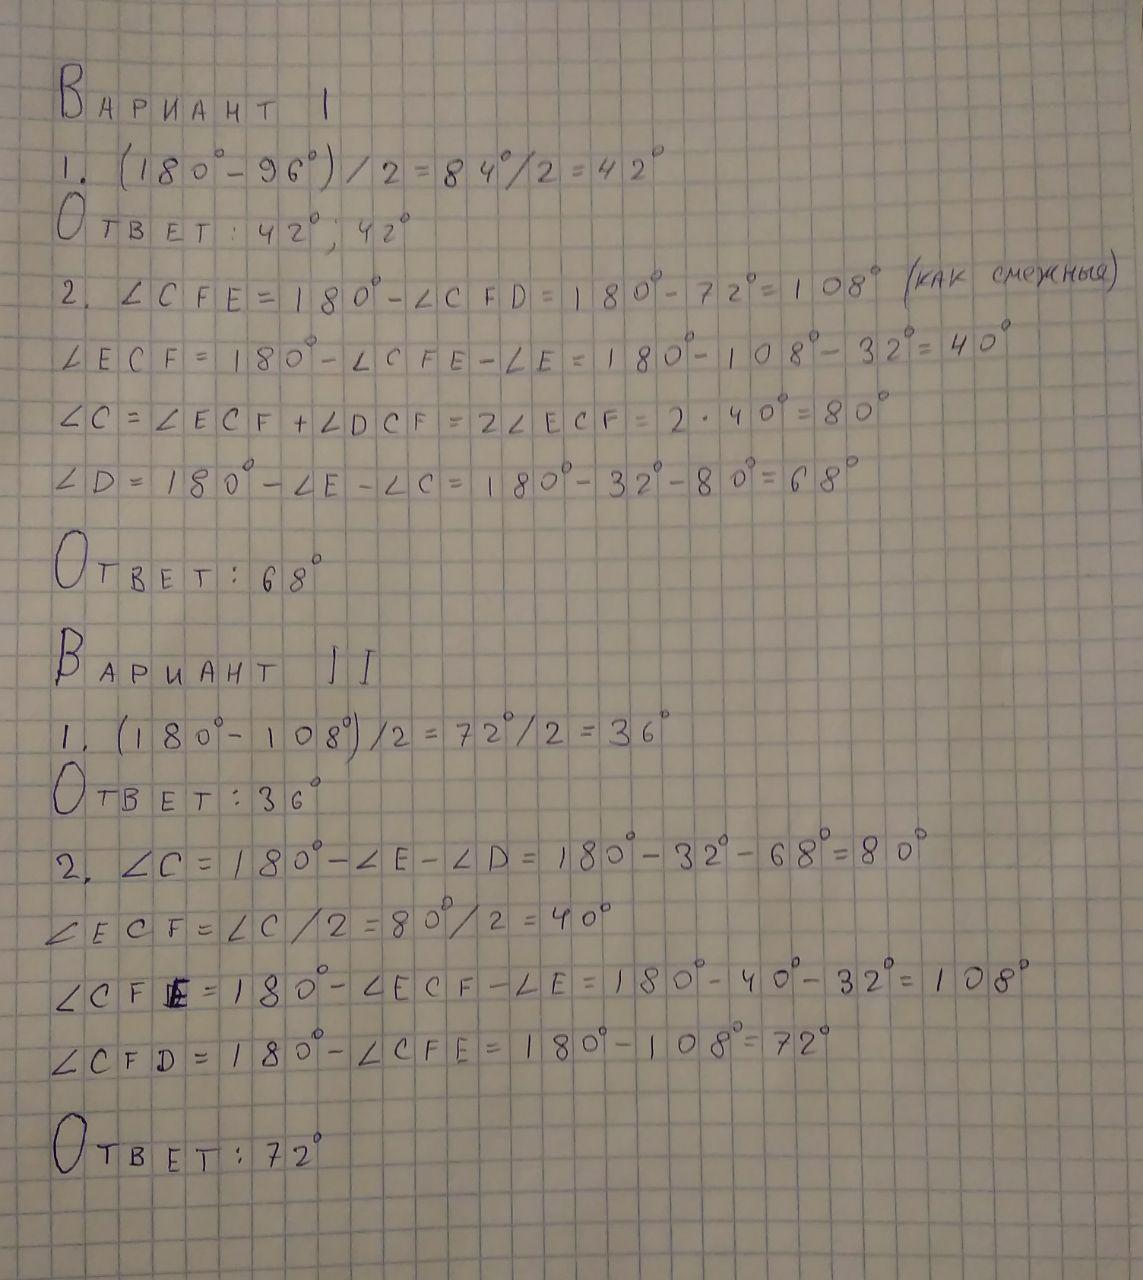 Вариант I
1. (180° - 96°) / 2 = 84° / 2 = 42°
Ответ: 42°; 42°
2. ∠CFE = 180° - ∠CFD = 180° - 72° = 108° (как смежные)
∠ECF = 180° - ∠CFE - ∠E = 180° - 108° - 32° = 40°
∠C = ∠ECF + ∠DCF = 2∠ECF = 2 · 40° = 80°
∠D = 180° - ∠E - ∠C = 180° - 32° - 80° = 68°
Ответ: 68°
Вариант II
1. (180° - 108°) / 2 = 72° / 2 = 36°
Ответ: 36°
2. ∠C = 180° - ∠E - ∠D = 180° - 32° - 68° = 80°
∠ECF = ∠C / 2 = 80° / 2 = 40°
∠CFE = 180° - ∠ECF - ∠E = 180° - 40° - 32° = 108°
∠CFD = 180° - ∠CFE = 180° - 108° = 72°
Ответ: 72°